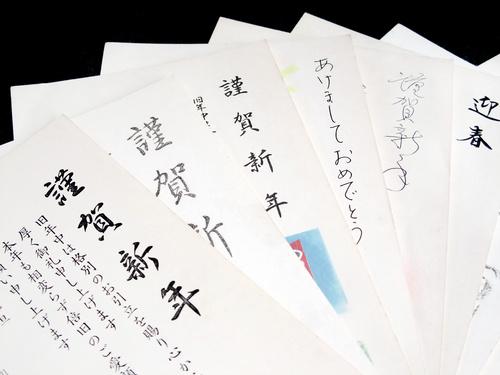 謹賀新年
旧年中は格別のお引立を賜り心か
厚く御礼申し上げます
本年も相変らず倍旧のご愛顧
願い申し上げます
謹賀新
謹賀新年
旧年中
あけましておめでとう
謹賀新年
迎春